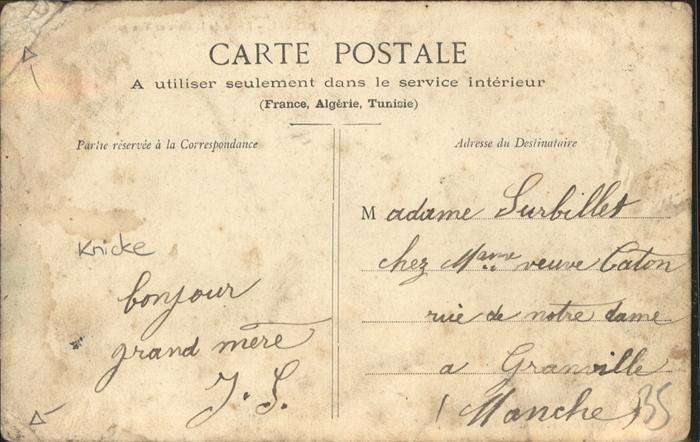 CARTE POSTALE
A utiliser seulement dans le service intérieur
(France, Algérie, Tunisie)
Partie réservée à la Correspondance
Adresse du Destinataire
Knicke
bonjour
grand mère
J. S.
Madame Surbillet
chez Mme veuve Caton
rue de notre dame
a Granville
(Manche)